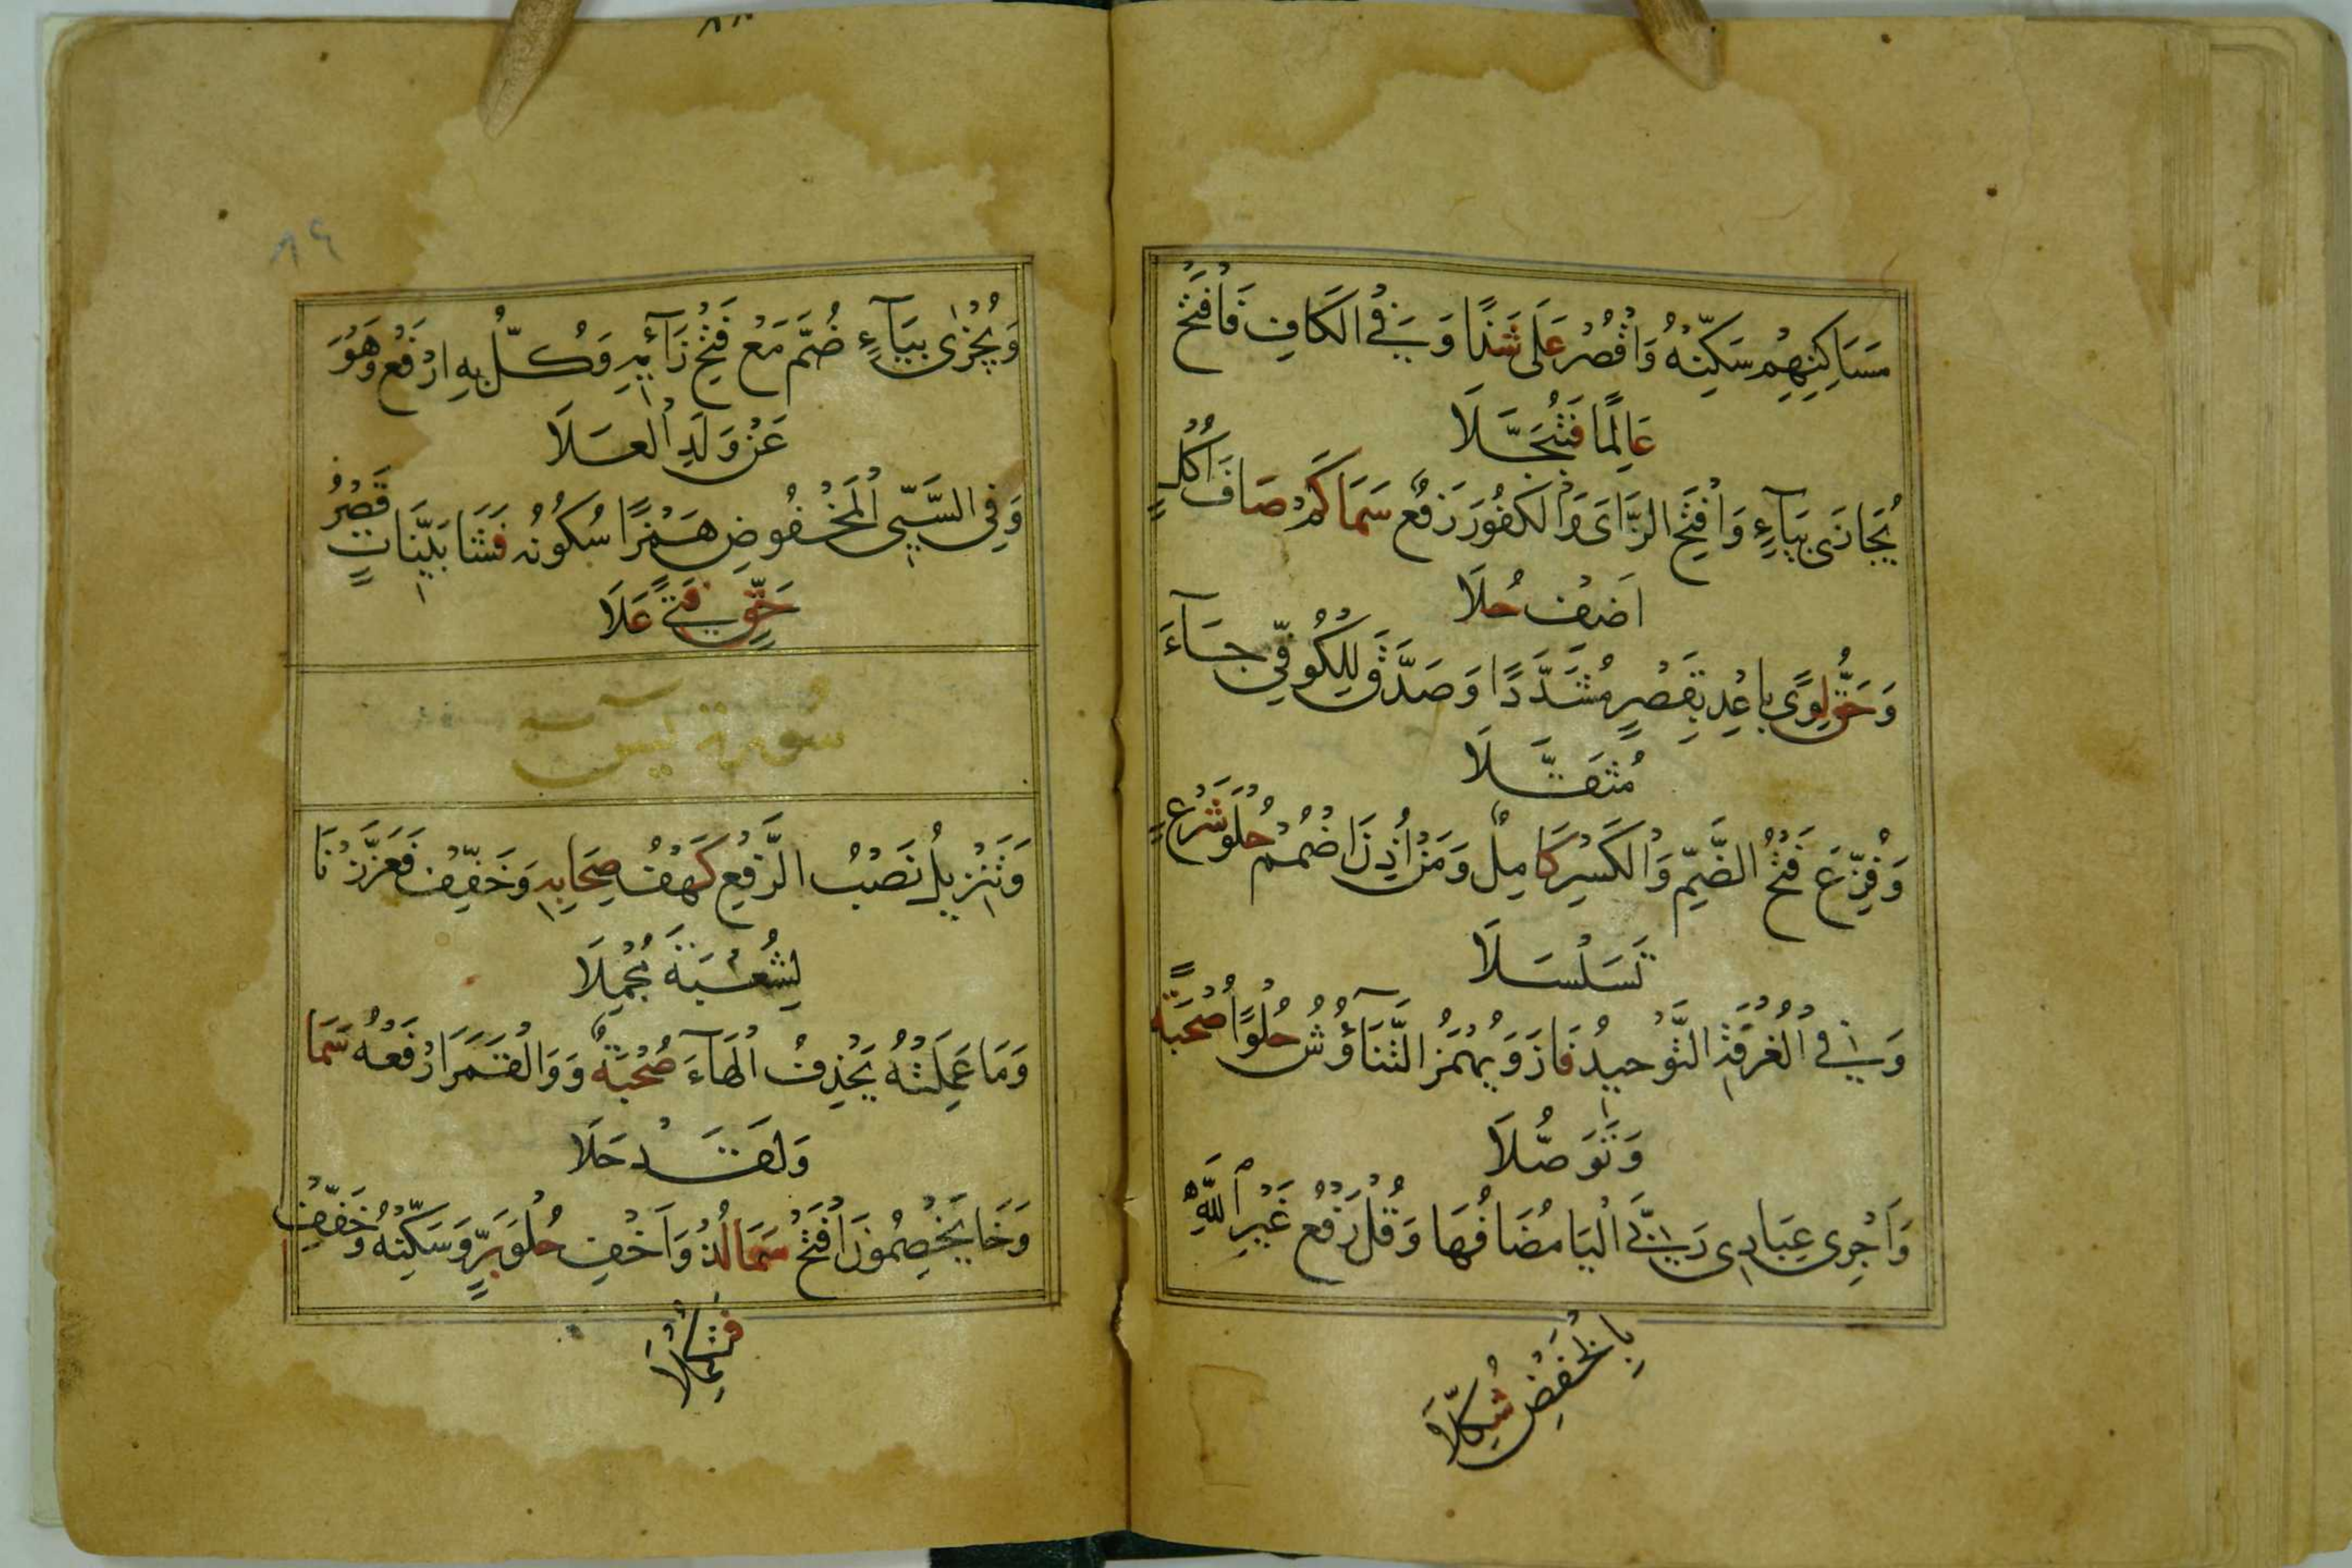 مَسَاكِنِهِمْ سَكِّنْهُ وَاقْصُرْ عَلَى شَذًا وَفِي الْكَافِ فَافْتَحْ
عَالِمًا فَتُبَجَّلَا
يُجَازَى بِيَاءٍ وَافْتَحِ الزَّايَ وَالْكَفُورَ رَفْعٌ سَمَا كَمْ صَابَ أُكْلٍ
اَضِفْ حُلَا
وَحَقُّ لِوًى بَاعِدْ بِقَصْرٍ مُشَدَّدًا وَصَدَّقَ لِلْكُوفِيِّ جَآءَ
مُثَقَّلَا
وَفُزِّعَ فَتْحُ الضَّمِّ وَالْكَسْرِ كَامِلٌ وَمَنْ أُذِنَ اضْمُمْ حُلْوَ شَرْعٍ
تَسَلْسَلَا
وَفِي الْغُرْفَةِ التَّوْحِيدُ فَازَ وَيُهْمَزُ التَّنَاؤُشُ حُلْوًا صُحْبَةً
وَتَوَصُّلَا
وَاَجْرِي عِبَادِي رَبِّيَ الْيَا مُضَافُهَا وَقُلْ رَفْعُ غَيْرِ اللَّهِ
بِالْخَفْضِ شُكِّلَا
٨٩
وَيُجْزٰى بِيَآءٍ ضُمَّ مَعْ فَتْحِ زَآئِهِ وَكُلُّ بِهِ ارْفَعْ وَهُوَ
عَنْ وَلَدِ الْعَلَا
وَفِي السَّيِّئِ الْمَخْفُوضِ هَمْزًا سُكُونُهُ فَشَا بَيِّنَاتٍ قَصْرُ
حَقٍّ فَتًى عَلَا
سُورَة يٓسٓ
وَتَنْزِيلُ نَصْبُ الرَّفْعِ كَهْفُ صِحَابِهِ وَخَفِّفْ فَعَزَّزْنَا
لِشُعْبَةَ مُجْمِلَا
وَمَا عَمِلَتْهُ يَحْذِفُ الْهَآءَ صُحْبَةٌ وَوَالْقَمَرَ ارْفَعْهُ سَمَا
وَلَقَدْ حَلَا
وَخَا يَخْصِمُونَ افْتَحْ سَمَا لُذْ وَاَخْفِ حُلْوَ بَرٍّ وَسَكِّنْهُ وَخَفِّفْ
فَتُكْمِلَا